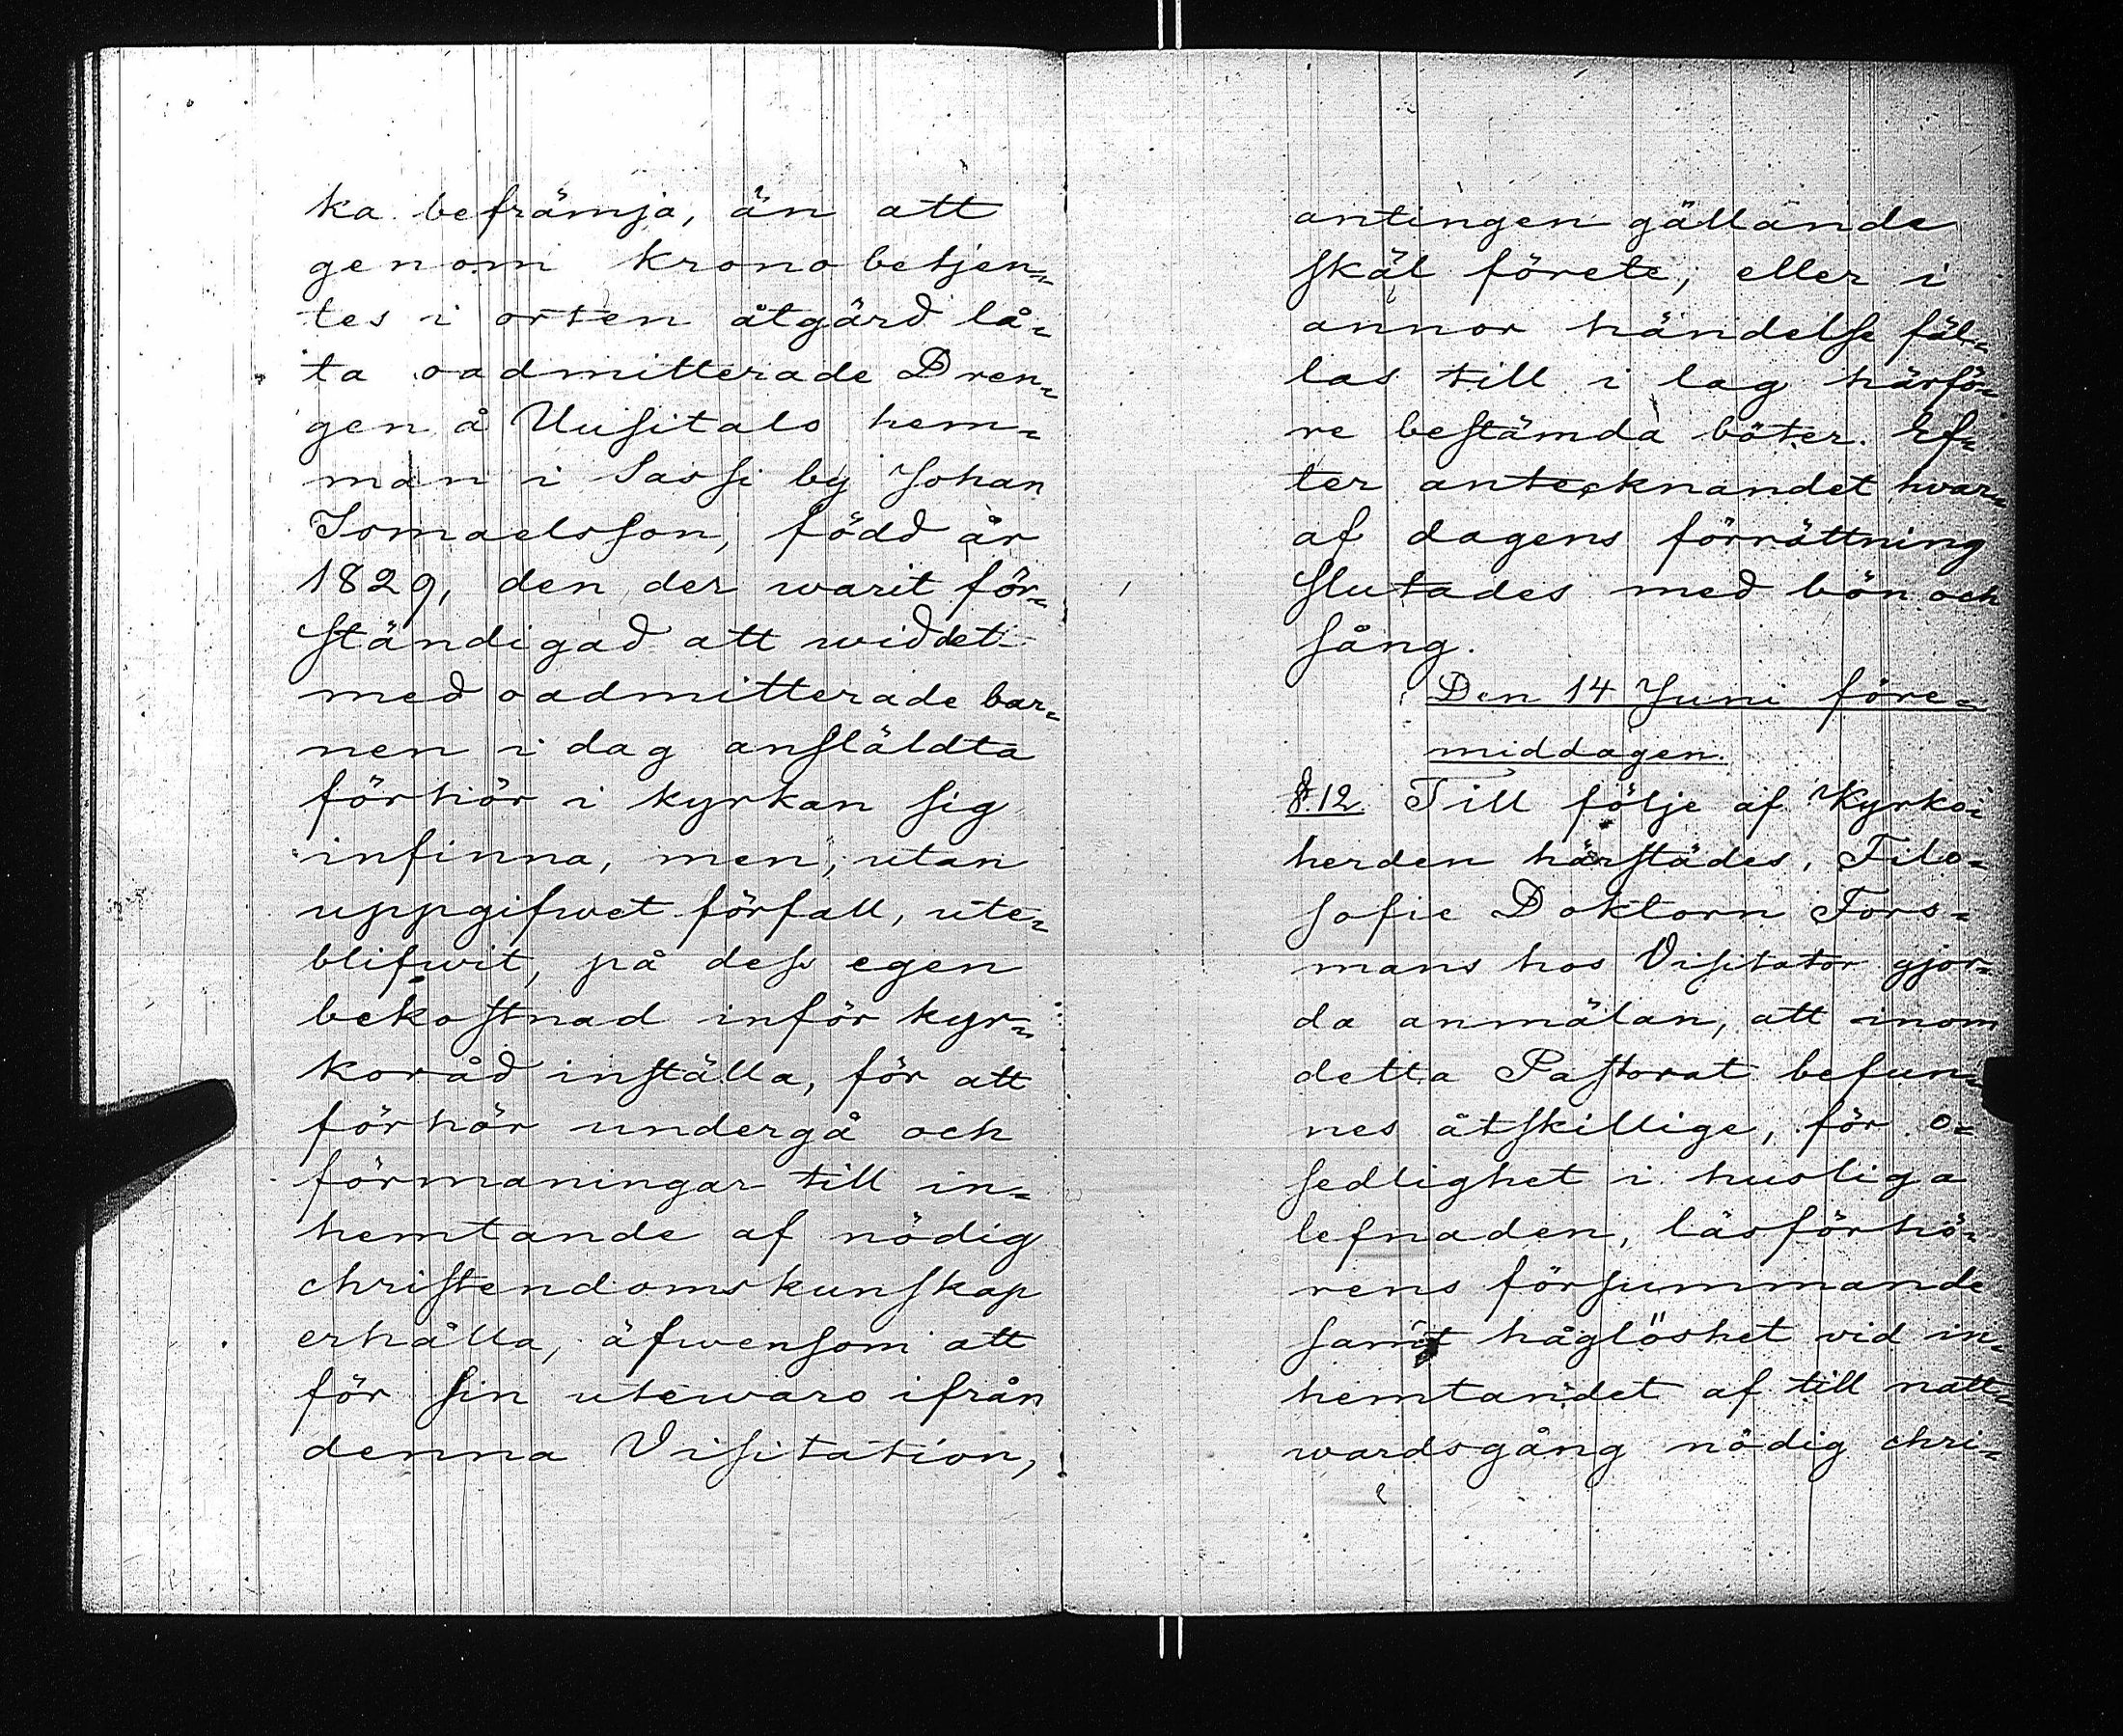 ka befrämja, än att
genom kronobetjen=
tes i orten åtgärd lå=
ta oadmitterade Dren=
gen å Uusitalo hem=
man i Sassi by Johan
Ismaelsson, född år
1829, den der warit för=
ständigad att widdet
med oadmitterade bar=
nen i dag anställdta
förhör i kyrkan sig
infinna, men, utan
uppgifwet förfall, ute=
blifwit, på dess egen
bekostnad inför kyr=
koråd inställa, för att
förhör undergå och
förmaningar till in=
hemtande af nödig
christendomskunskap
erhålla, äfwensom att
för sin utewaro ifrån
denna Visitation,
antingen gällande
skäl förete, eller i
annor händelse fäl=
las till i lag härfö=
re bestämda böter. Ef=
ter antecknandet hvar=
af dagens förrättning
slutades med bön och
sång.
Den 14 Juni före=
middagen.
§.12. Till följe af Kyrko=
herden härstädes, Filo=
sofie Doktorn Fors=
mans hos Visitator gjor=
da anmälan, att inom
detta Pastorat befun=
nes åtskillige, för o=
sedlighet i husliga
lefnaden, läsförhö=
rens försummande
samt håglöshet vid in=
hemtandet af till natt=
wardsgång nödig chri=